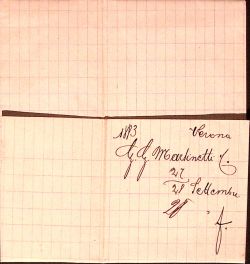 1893 Verona
G. G. Martinetti C.
27
28 Settembre
28 "
f.